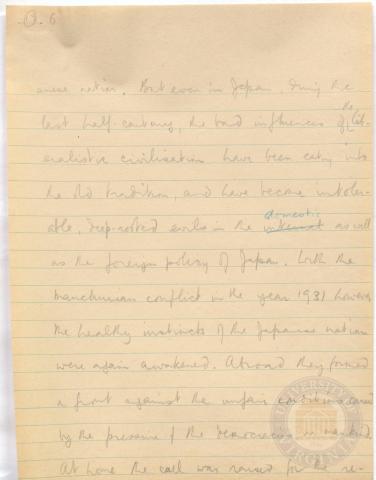 O. 6
anese nation. But even in Japan, during the
last half-century, the bad influences of the lib-
eralistic civilisation have been eating into
the old tradition, and have become intoler-
able, deep-rooted evils in the internal domestic as well
as the foreign policy of Japan. With the
Manchurian conflict in the year 1931 however
the healthy instincts of the Japanese nation
were again awakened. Abroad they formed
a front against the unfair conditions caused
by the pressure of the democracies
At home the call was raised for the re-
UNIVERSITY OF VIRGINIA